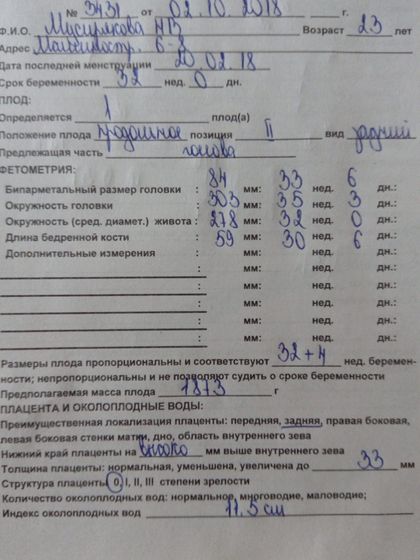 № 3431 от 02.10.2018 г.
Ф.И.О. НВ Возраст 23 лет
Адрес 6-8
Дата последней менструации 20.02.18
Срок беременности 32 нед. 0 дн.
ПЛОД:
Определяется 1 плод(а)
Положение плода продольное позиция II вид задний
Предлежащая часть голова
ФЕТОМЕТРИЯ:
Бипариетальный размер головки : 84 мм: 33 нед. 6 дн.:
Окружность головки : 303 мм: 35 нед. 3 дн.:
Окружность (сред. диамет.) живота : 278 мм: 32 нед. 0 дн.:
Длина бедренной кости : 59 мм: 30 нед. 6 дн.:
Дополнительные измерения : мм: нед. дн.:
: мм: нед. дн.:
: мм: нед. дн.:
: мм: нед. дн.:
: мм: нед. дн.:
Размеры плода пропорциональны и соответствуют 32+4 нед. беремен-
ности; непропорциональны и не позволяют судить о сроке беременности
Предполагаемая масса плода 1873 г
ПЛАЦЕНТА И ОКОЛОПЛОДНЫЕ ВОДЫ:
Преимущественная локализация плаценты: передняя, задняя, правая боковая,
левая боковая стенки матки, дно, область внутреннего зева
Нижний край плаценты на высоко мм выше внутреннего зева
Толщина плаценты: нормальная, уменьшена, увеличена до 33 мм
Структура плаценты 0 I, II, III степени зрелости
Количество околоплодных вод: нормальное, многоводие, маловодие;
Индекс околоплодных вод 11,5 см